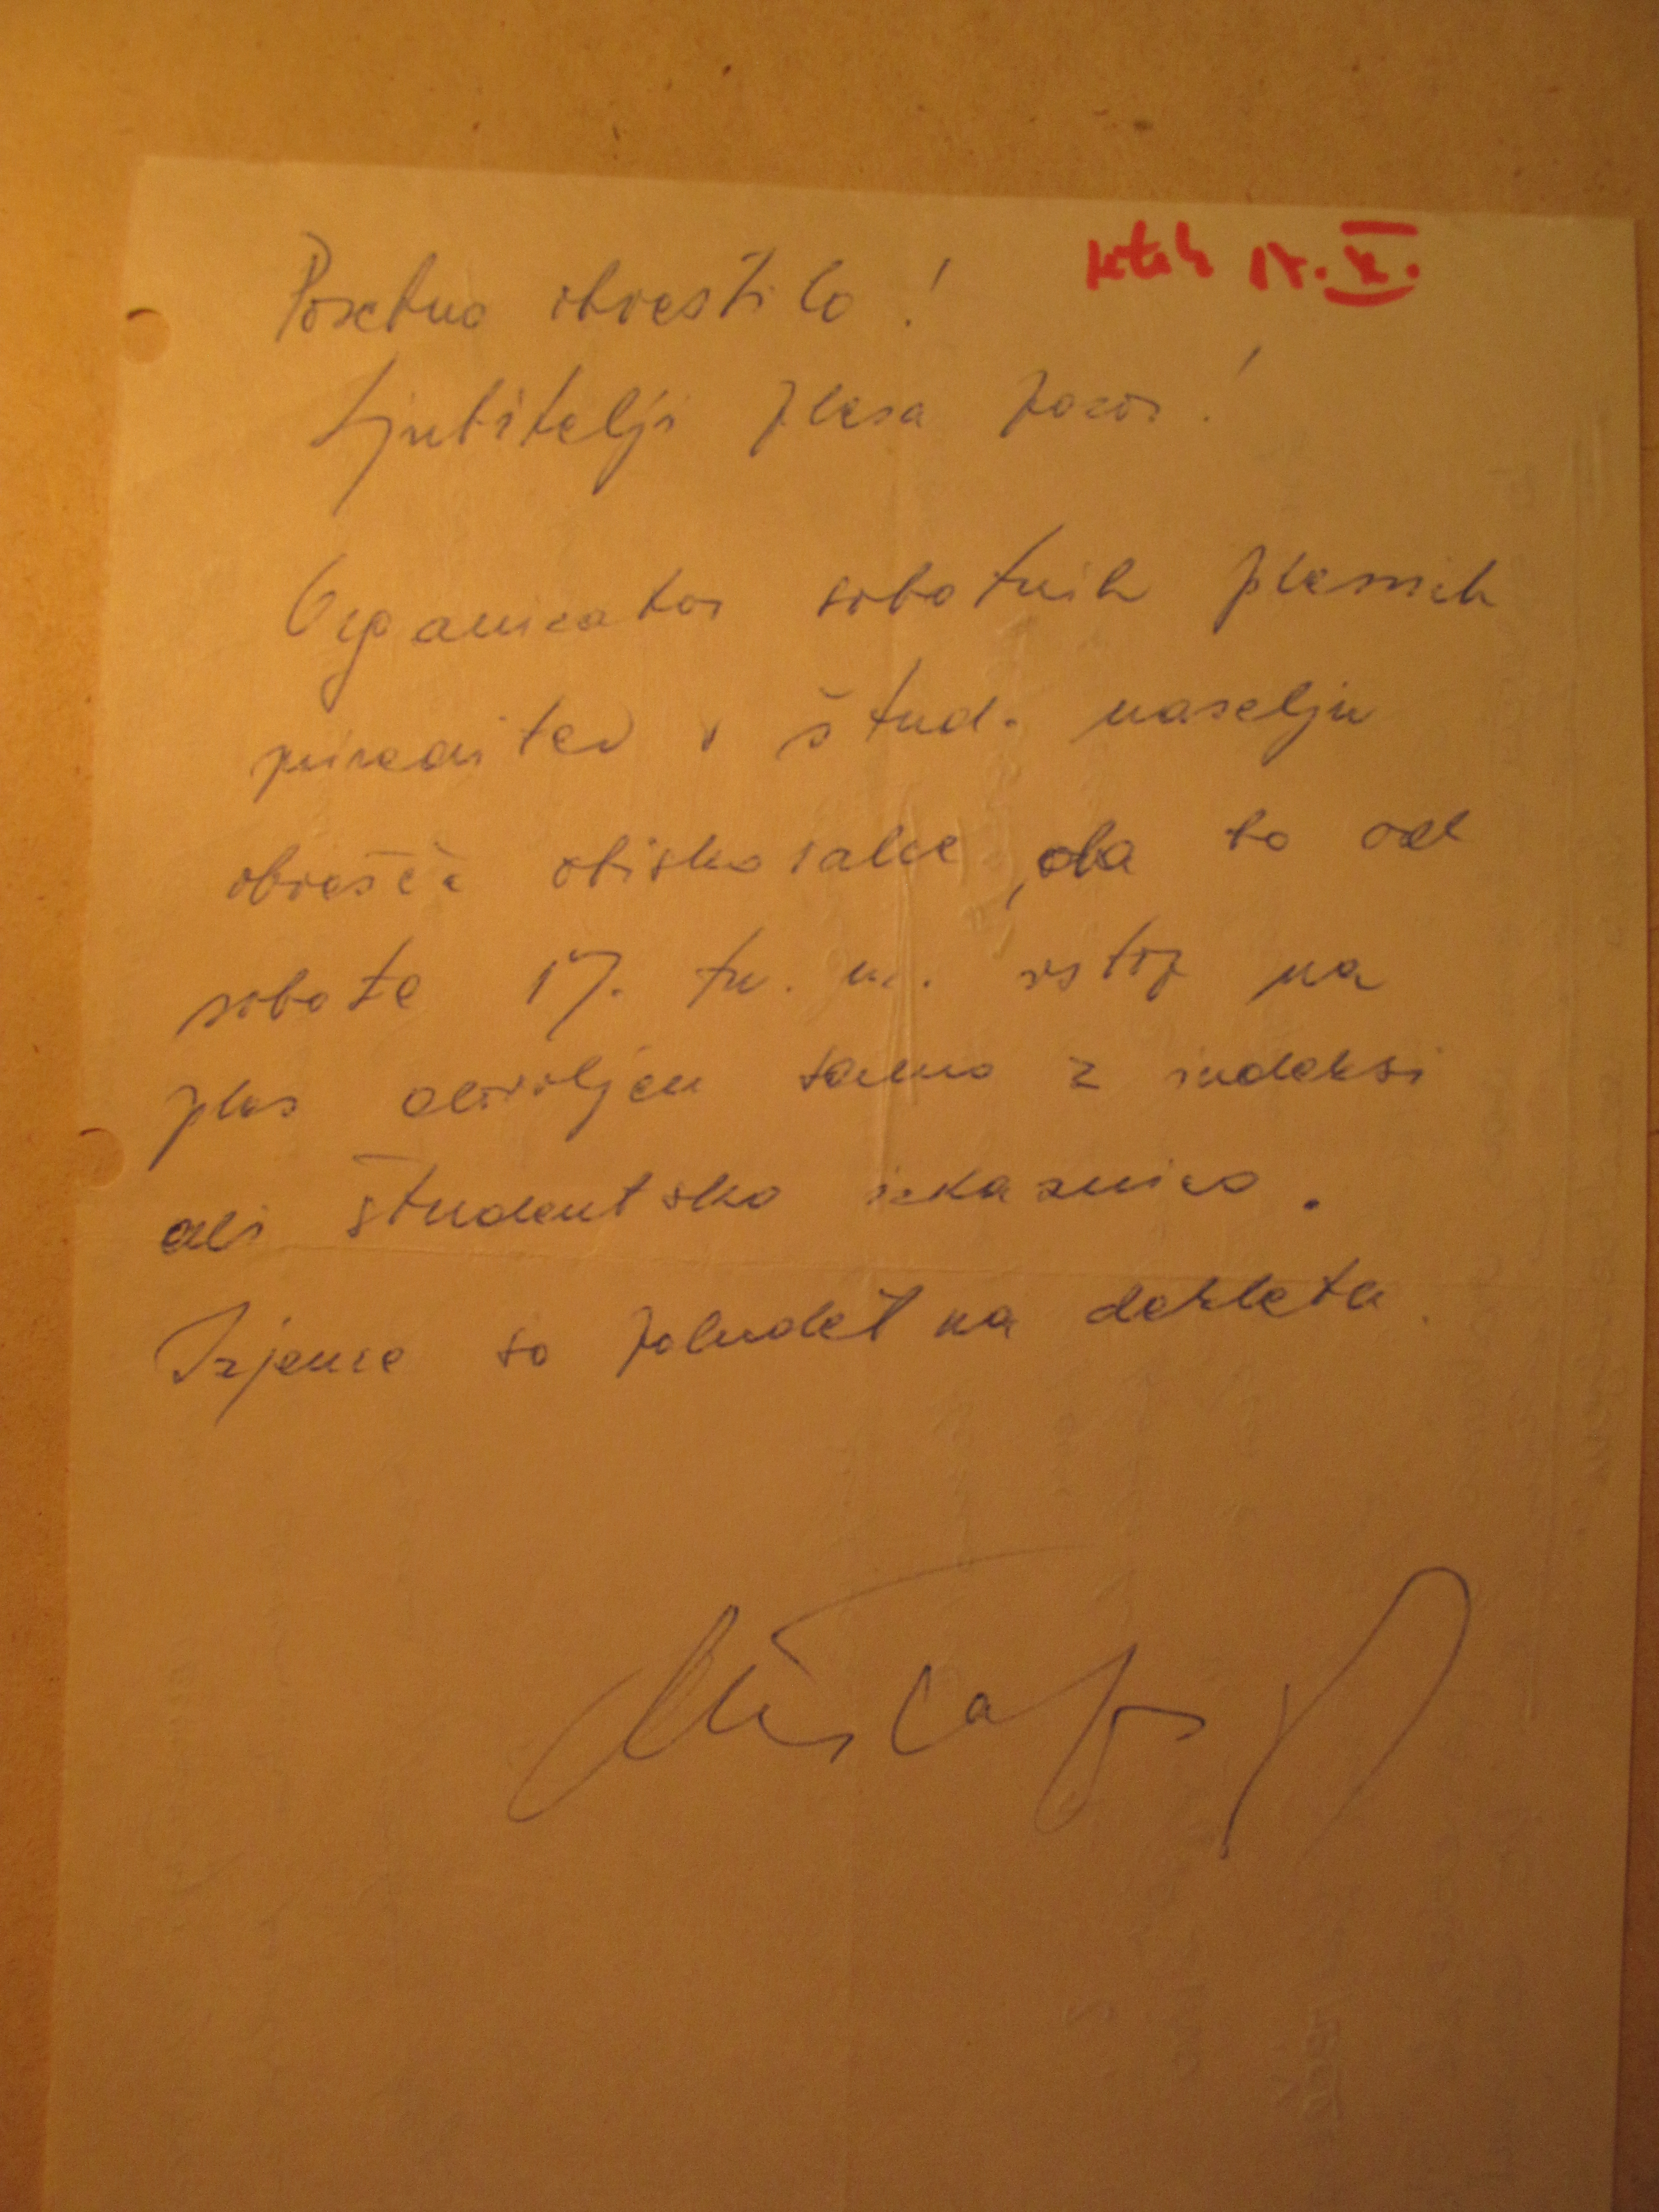 Posebno obvestilo!
Ljubitelji plesa pozor!
Organizator sobotnih plesnih
prireditev v štud. naselju
obvešča obiskovalce, da bo od
sobote 17. t. m. vstop na
ples dovoljen samo z indeksi
ali študentsko izkaznico.
Izjeme so poludet na dekleta.
X.